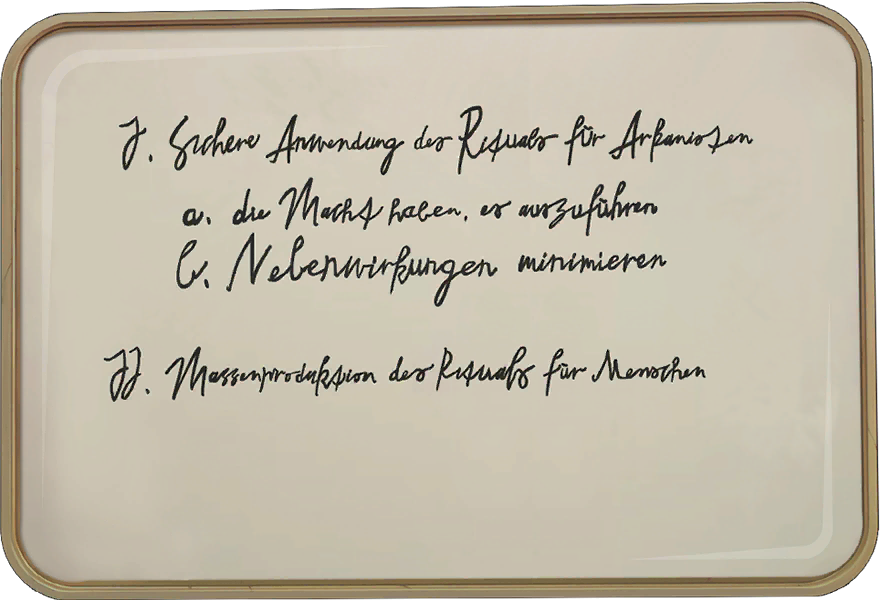 I. Sichere Anwendung des Rituals für Arkanisten
a. die Macht haben, es auszuführen
b. Nebenwirkungen minimieren
II. Massenproduktion des Rituals für Menschen